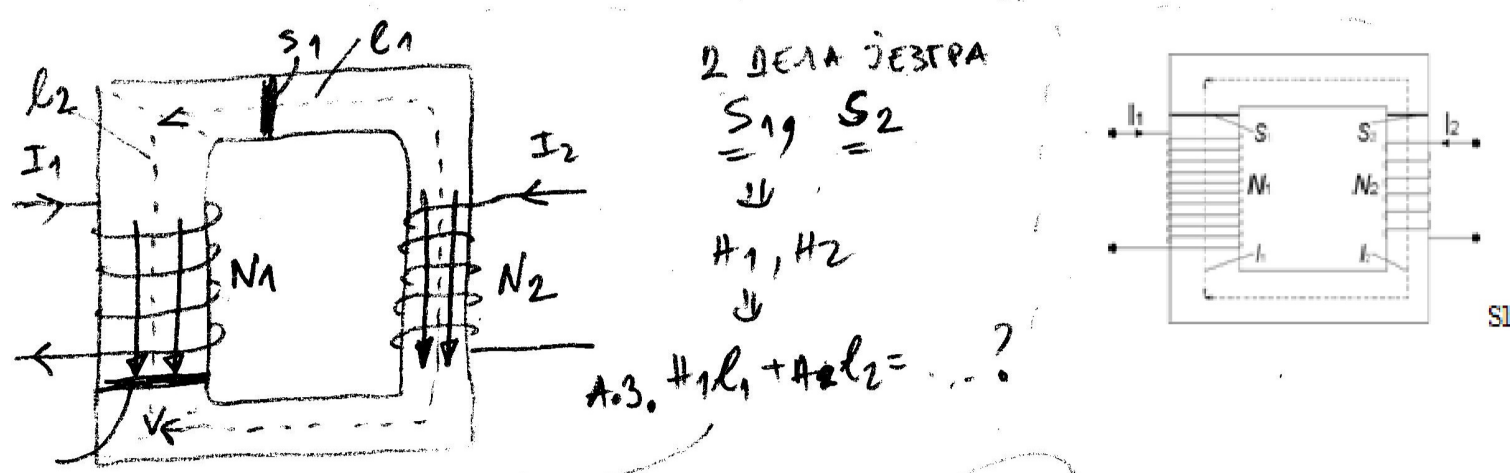 S1 l1
l2
I1
N1
I2
N2
2 ДЕЛА ЈЕЗГРА
S1, S2
⇓
H1, H2
⇓
А.З. H1l1 + H2l2 = ....?
I1
S1
S2
I2
N1
N2
l1
l2
Sl